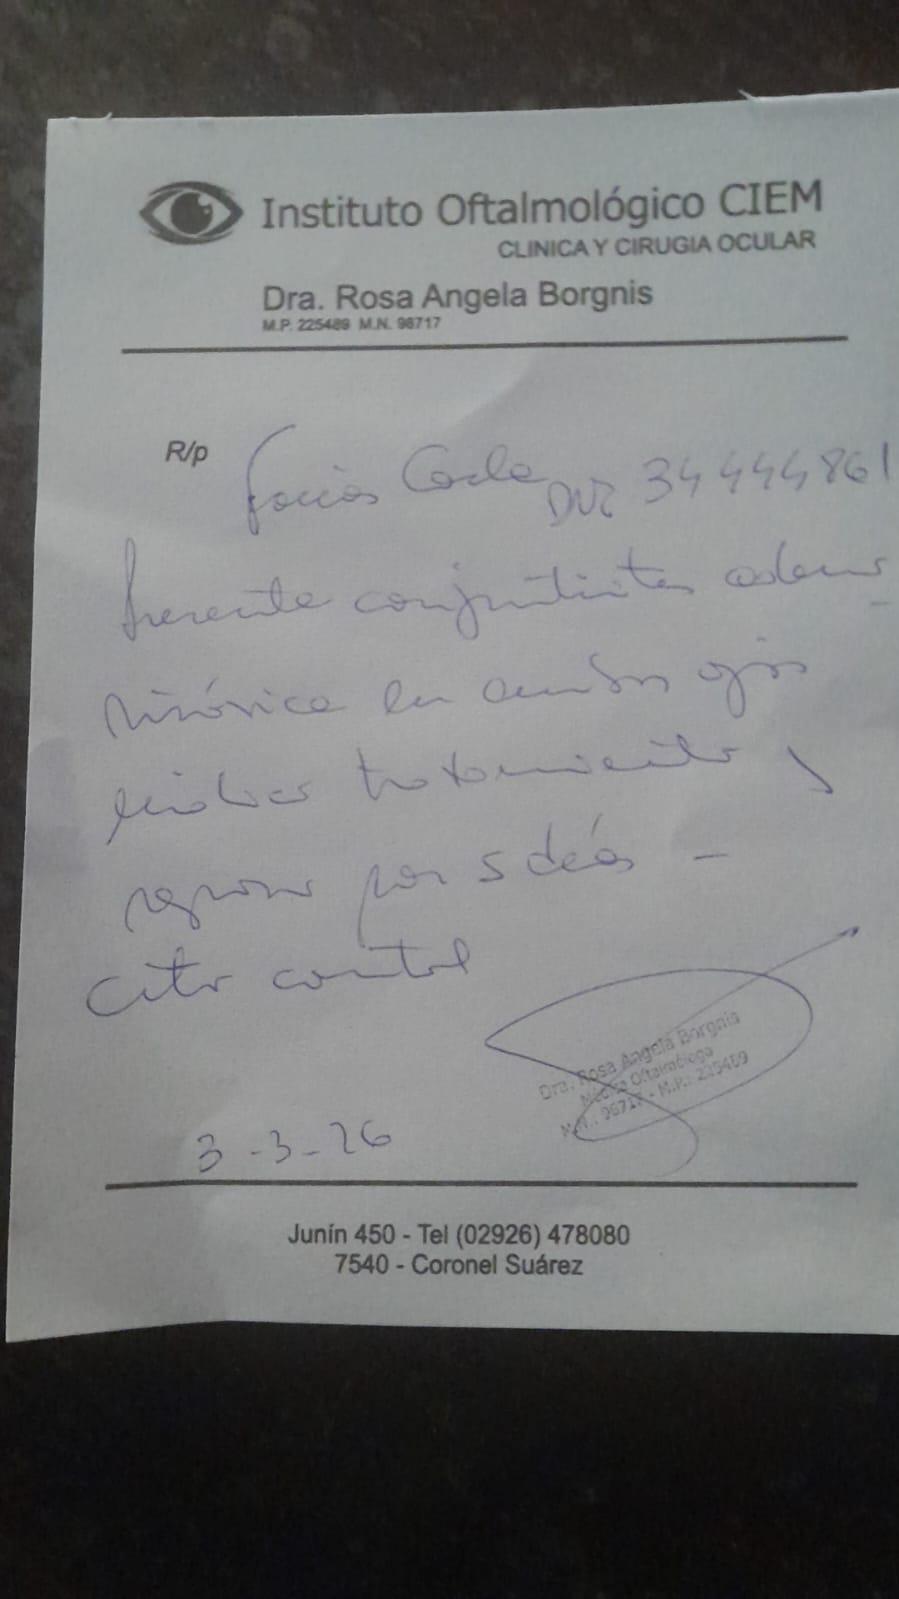 Instituto Oftalmológico CIEM
CLINICA Y CIRUGIA OCULAR
Dra. Rosa Angela Borgnis
M.P. 225489 M.N. 98717
R/p
DNI 34444861
Presenta conjuntivitis adeno
en ambos ojos
tratamiento y
reposo por 5 días -
Cito control
Dra. Rosa Angela Borgnis
Médica Oftalmóloga
M.N.: 98717 - M.P.: 225489
3-3-26
Junín 450 - Tel (02926) 478080
7540 - Coronel Suárez